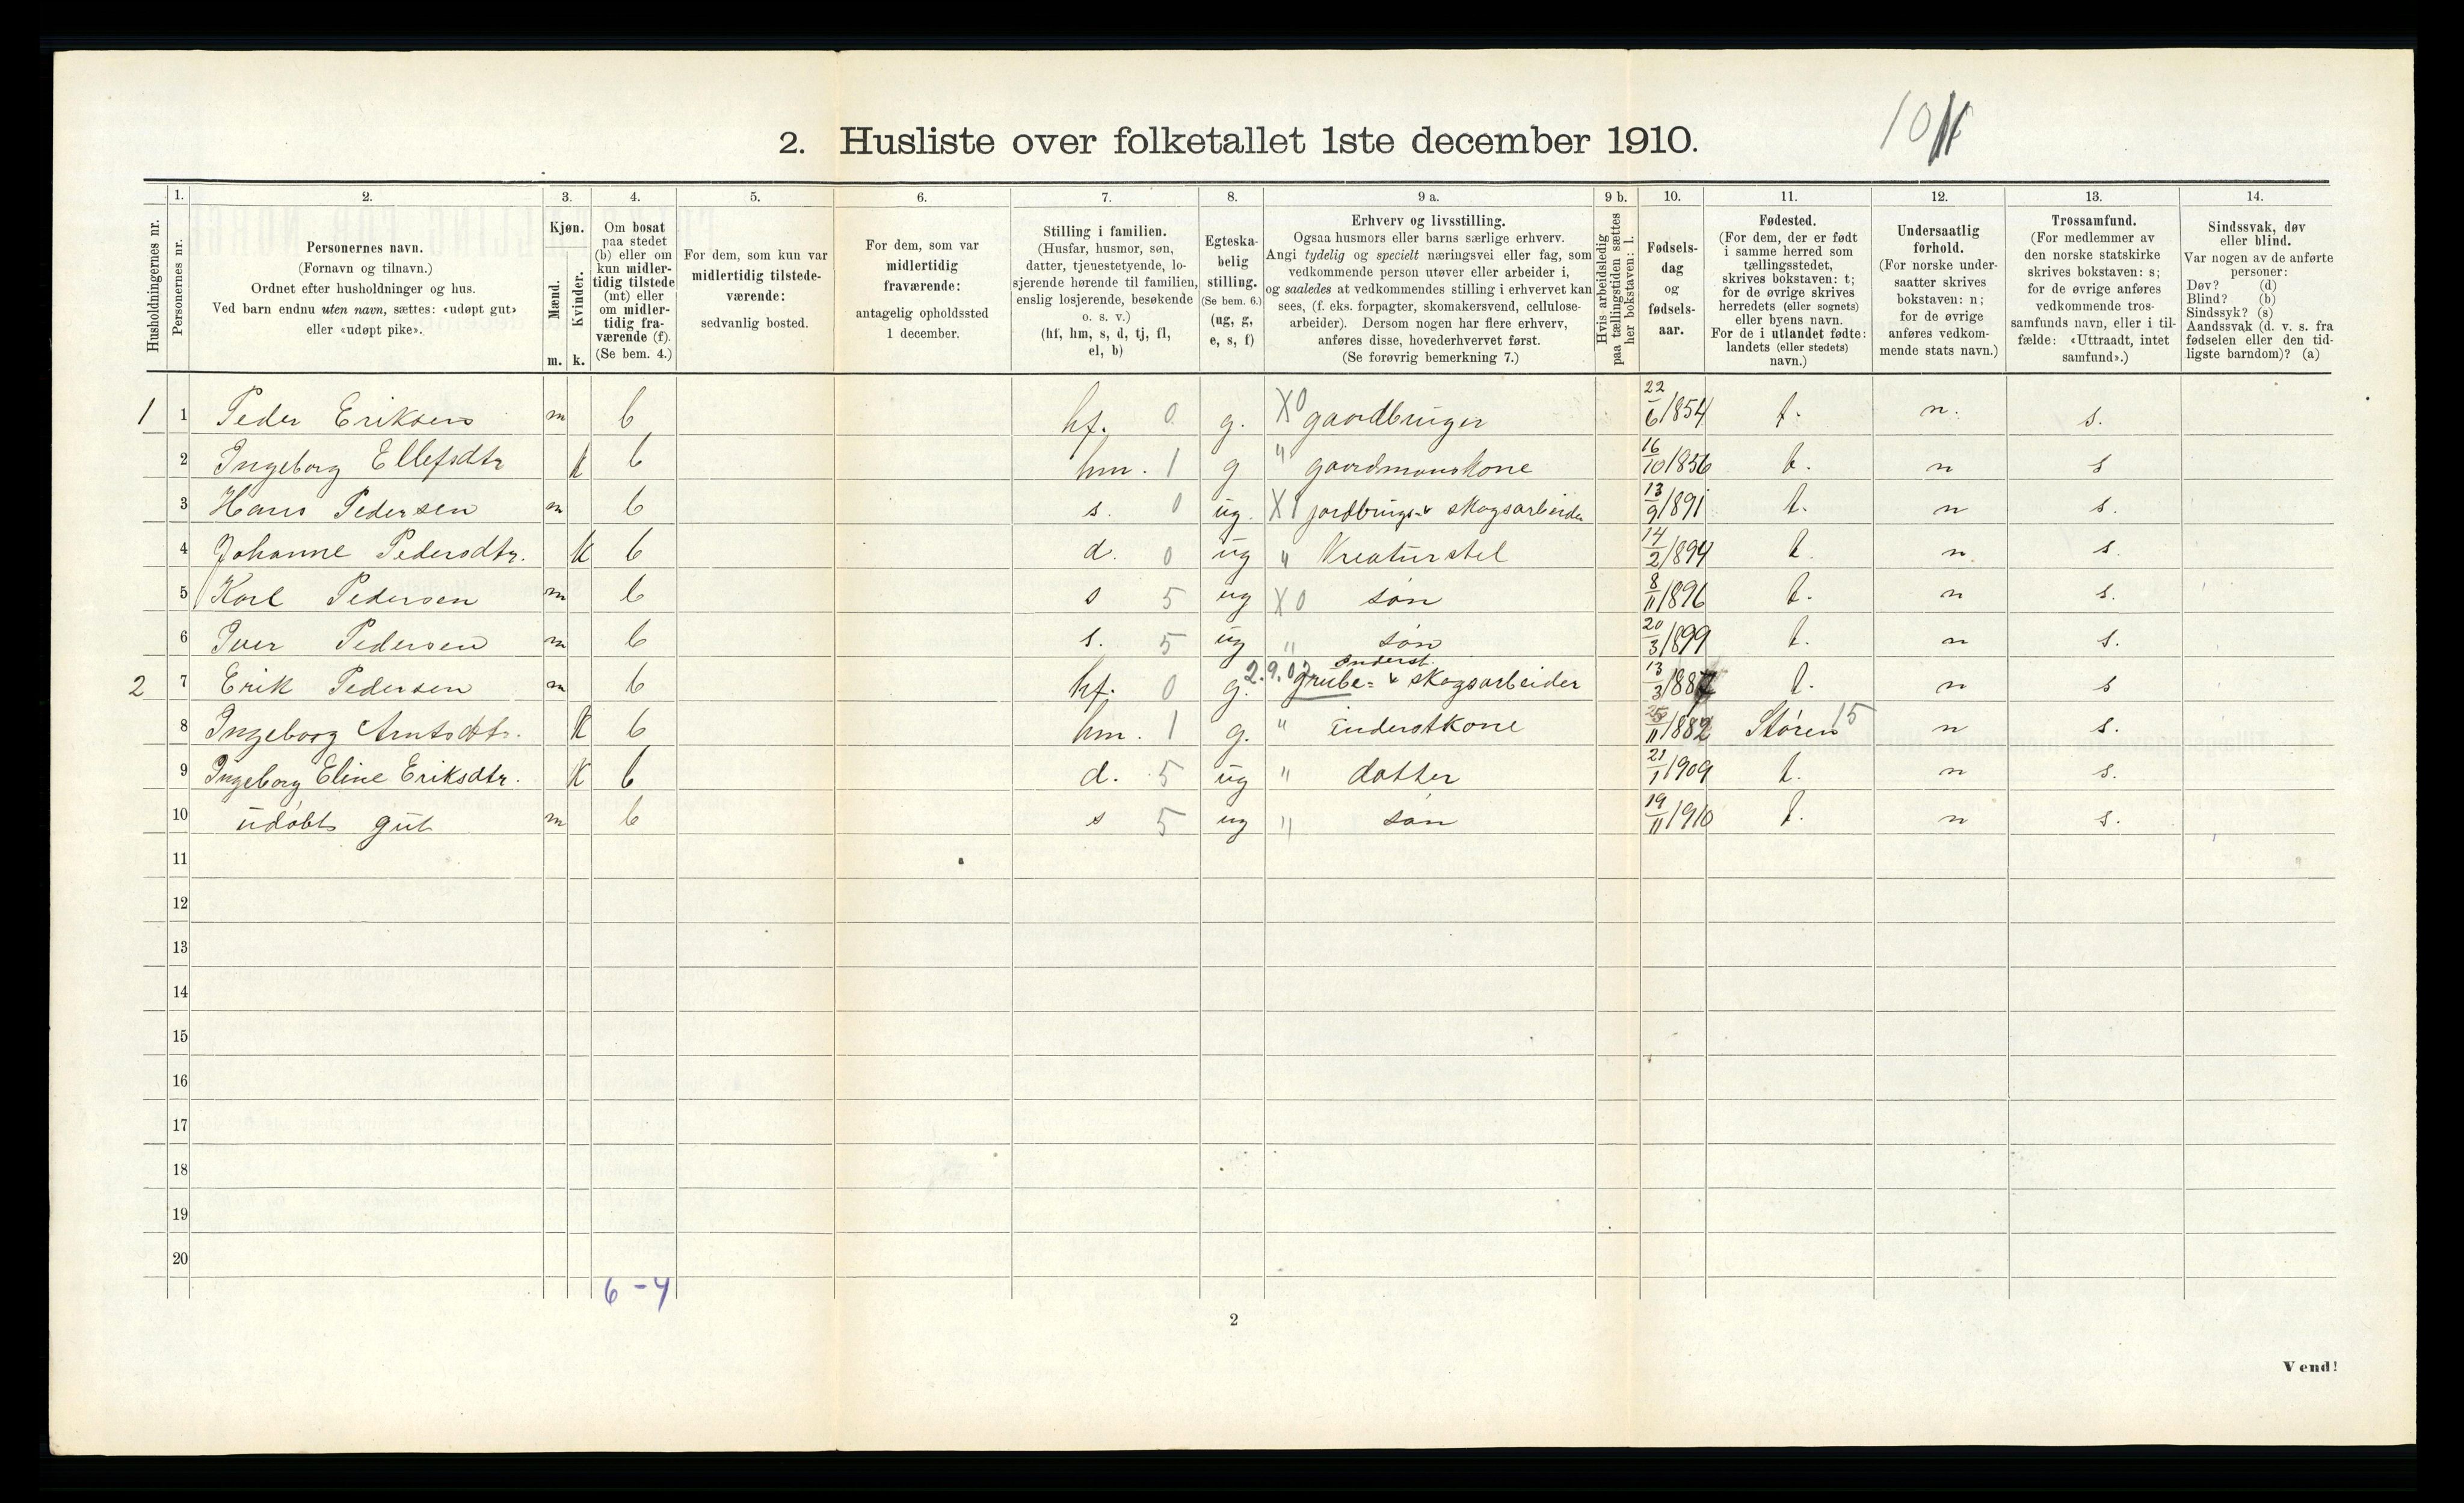 2. Husliste over folketallet 1ste december 1910.
10
Husholdningernes nr.
Personernes nr.
1. 2. 3. 4. 5. 6. 7. 8. 9 a. 9 b. 10. 11. 12. 13. 14.
Personernes navn.
(Fornavn og tilnavn.)
Ordnet efter husholdninger og hus.
Ved barn endnu uten navn, sættes: «udøpt gut»
eller «udøpt pike».
Kjøn.
Mænd.
Kvinder.
m. k.
Om bosat
paa stedet
(b) eller om
kun midler-
tidig tilstede
(mt) eller
om midler-
tidig fra-
værende (f).
(Se bem. 4.)
For dem, som kun var
midlertidig tilstede-
værende:
sedvanlig bosted.
For dem, som var
midlertidig
fraværende:
antagelig opholdssted
1 december.
Stilling i familien.
(Husfar, husmor, søn,
datter, tjenestetyende, lo-
sjerende hørende til familien,
enslig losjerende, besøkende
o. s. v.)
(hf, hm, s, d, tj, fl,
el, b)
Egteska-
belig
stilling.
(Se bem. 6.)
(ug, g,
e, s, f)
Erhverv og livsstilling.
Ogsaa husmors eller barns særlige erhverv.
Angi tydelig og specielt næringsvei eller fag, som
vedkommende person utøver eller arbeider i,
og saaledes at vedkommendes stilling i erhvervet kan
sees, (f. eks. forpagter, skomakersvend, cellulose-
arbeider). Dersom nogen har flere erhverv,
anføres disse, hovederhvervet først.
(Se forøvrig bemerkning 7.)
Hvis arbeidsledig
paa tællingstiden sættes
her bokstaven: l.
Fødsels-
dag
og
fødsels-
aar.
Fødested.
(For dem, der er født
i samme herred som
tællingsstedet,
skrives bokstaven: t;
for de øvrige skrives
herredets (eller sognets)
eller byens navn.
For de i utlandet fødte:
landets (eller stedets)
navn.)
Undersaatlig
forhold.
(For norske under-
saatter skrives
bokstaven: n;
for de øvrige
anføres vedkom-
mende stats navn.)
Trossamfund.
(For medlemmer av
den norske statskirke
skrives bokstaven: s;
for de øvrige anføres
vedkommende tros-
samfunds navn, eller i til-
fælde: «Uttraadt, intet
samfund».)
Sindssvak, døv
eller blind.
Var nogen av de anførte
personer:
Døv? (d)
Blind? (b)
Sindssyk? (s)
Aandssvak (d. v. s. fra
fødselen eller den tid-
ligste barndom)? (a)
1 1 Peder Eriksen m b hf. 0 g. X0 gaardbruger 22/6 1854 t. n. s.
2 Ingeborg Ellefsdtr k b hm. 1 g " gaardmanskone 16/10 1856 t. n s
3 Hans Pedersen m b s. 0 ug. X1 jordbrugs- & skogsarbeider 13/9 1891 t. n s.
4 Johanne Pedersdtr. k b d. 0 ug " Kreaturstel 14/2 1894 t. n s.
5 Karl Pedersen m b s 5 ug X0 søn 8/11 1896 t. n s.
6 Iver Pedersen m b s. 5 ug " søn 20/3 1899 t. n s.
2 7 Erik Pedersen m b hf. 0 g. 2.9.02 inderst. grube- & skogsarbeider 13/3 1887 t. n s
8 Ingeborg Arntsdtr. k b hm. 1 g. " inderstkone 25/11 1882 Støren 15 n s.
9 Ingeborg Eline Eriksdtr. k b d. 5 ug " datter 21/1 1909 t. n s.
10 udøbt gut m b s 5 ug " søn 19/11 1910 t. n s.
11
12
13
14
15
16
17
18
19
20
6 - 4
2
Vend!